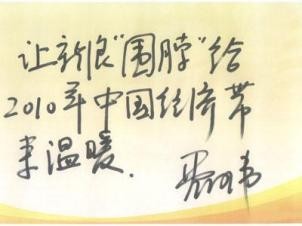 让新浪“围脖”给
2010年中国经济带
来温暖.